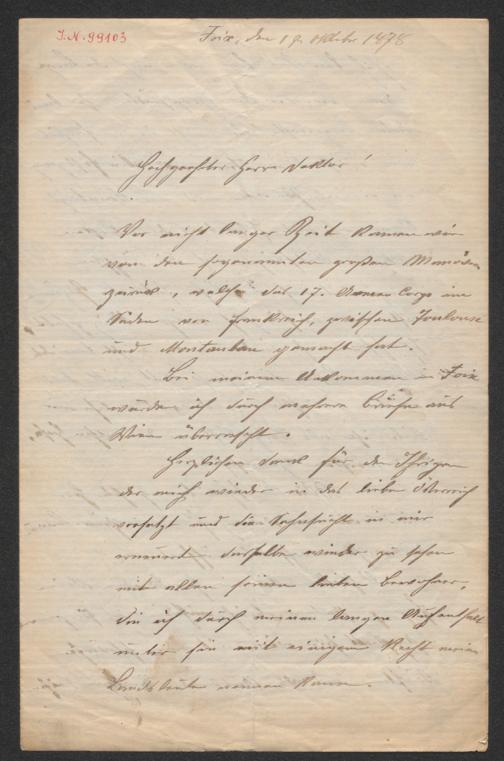 I.N. 99103
Foix, den Oktober 1878
Hochgeehrter Herr Doktor!
Vor nicht langer Zeit kamen wir
von den sogenannten großen Manövern
zurück, welche das 17. Armee Corps im
Süden von Frankreich, zwischen Toulouse
und Montauban gemacht hat.
Bei meinem Ankommen in Foix
wurde ich durch mehrere Briefe aus
Wien überrascht.
Herzlichen Dank für den Ihrigen
der mich wieder in das liebe Österreich
versetzt und die Sehnsucht in mir
erneuert dasselbe wieder zu sehen
mit allen seinen lieben Bewohner,
die ich durch meinen langen Aufenthalt
unter sie mit einigem Recht meine
Landsleute nennen kann.